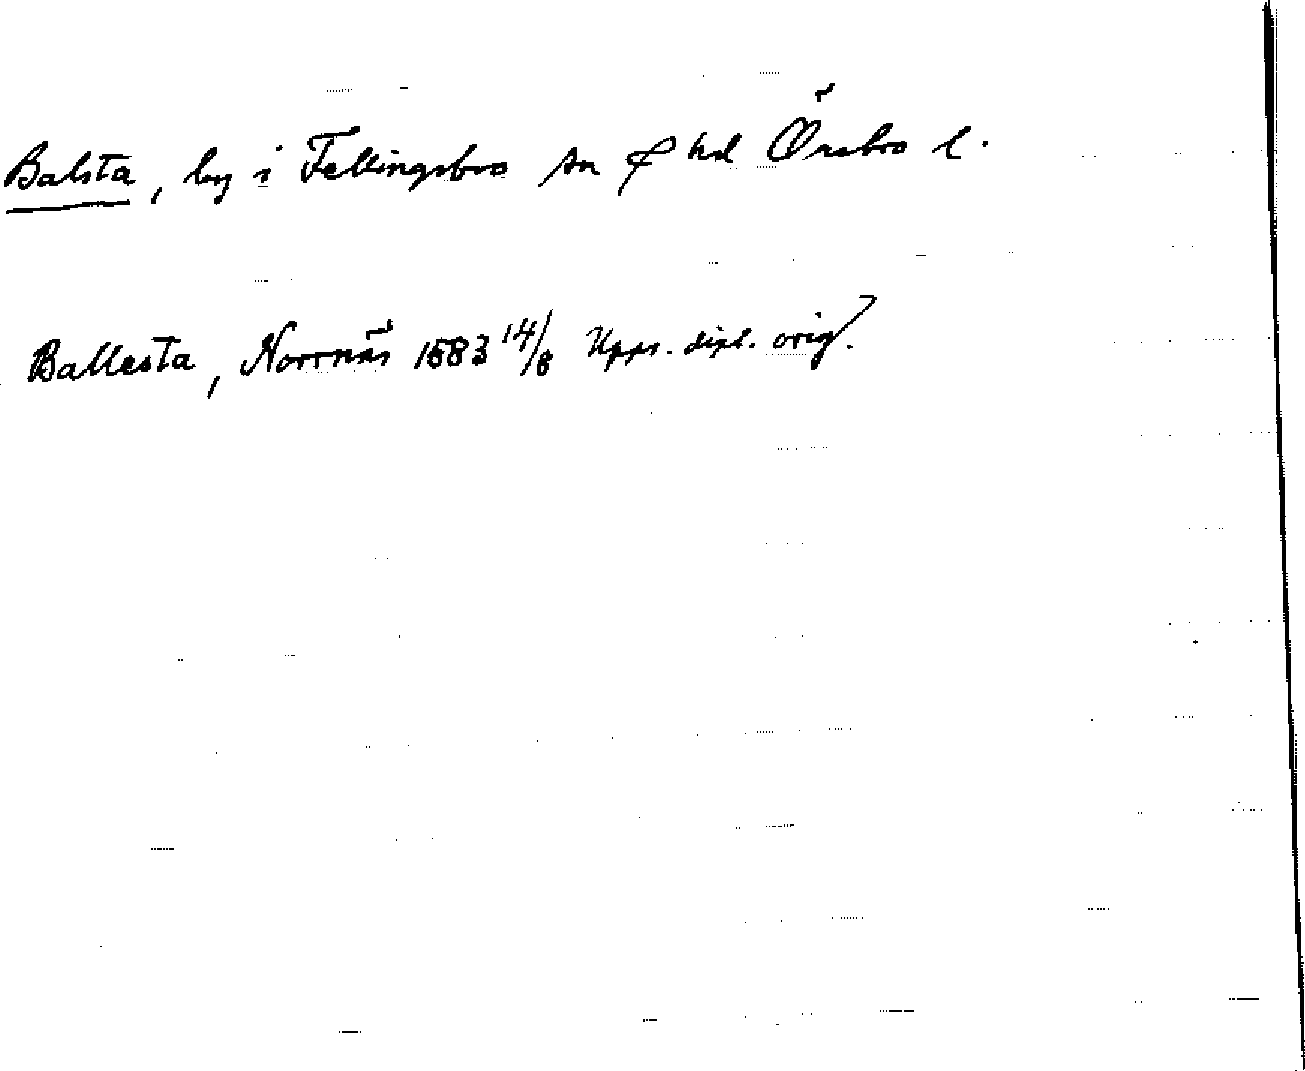 Balsta, by i Fellingsbro sn o hd Örebro l.
Ballesta, Norrnäs 1583 14/8 Upps. dipl. orig.